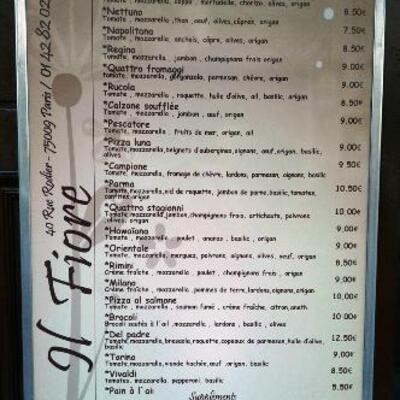 Il Fiore
40 Rue Rodier - 75009 Paris / 01 42 82 02
Tomate, mozzarella, coppa, mortadelle, chorizo, olives, origan
*Nettuno 8.50€
Tomate, mozzarella, thon, oeuf, olives, câpres, origan
*Napolitana 7.50€
Tomate, mozzarella, anchois, câpre, olives, origan
*Regina 9.00€
Tomate, mozzarella, jambon, champignons frais origan
*Quattro fromaggi 9,00€
tomate, mozzarella, gorgonzola, parmesan, chèvre, origan
*Rucola 9,00€
Tomate, mozzarella, roquette, huile d'olive, ail, basilic, origan
*Calzone soufflée 8.50€
Tomate, mozzarella, jambon, oeuf, origan
*Pescatore 9,00€
Tomate, mozzarella, fruits de mer, origan, ail
*Pizza luna 9.00€
Tomate, mozzarella, beignets d'aubergines, oignons, oeuf, origan, basilic, olives
*Campione 9.50€
Tomate, mozzarella, fromage de chèvre, lardons, parmesan, oignons, basilic
*Parma 10,50€
Tomate, mozzarella, nid de roquette, jambon de parme, basilic, tomates, confites, origan
*Quattro stagionni 10.00€
Tomate, mozzarella, jambon, champignons frais, artichauts, poivrons, olives, origan
*Hawaïana 9.00€
Tomate, mozzarella, poulet, ananas, basilic, origan
*Orientale 9.00€
Tomate, mozzarella, merguez, poivrons, oignons, olives, oeuf, origan
*Rimini 9.50€
Crème fraîche, mozzarella, poulet, champignons frais, origan
*Milano 9,00€
Crème fraîche, mozzarella, pommes de terre, lardons, oignons, origan
*Pizza al salmone 10,00€
Tomate, mozzarella, saumon fumé, crème fraîche, citron, aneth
*Brocoli 10.00€
Brocoli sautés à l'ail, mozzarella, lardons, basilic, olives
*Del padre 12.50€
Tomate, mozzarella, bresaola, roquette, copeaux de parmesan, huile d'olive, basilic
*Torino 9,00€
Tomate, mozzarella, viande hachée, oeuf, origan, basilic
*Vivaldi 8.50€
tomates, mozzarella, pepperoni, basilic
*Pain à l'ail 5.50€
Suppléments